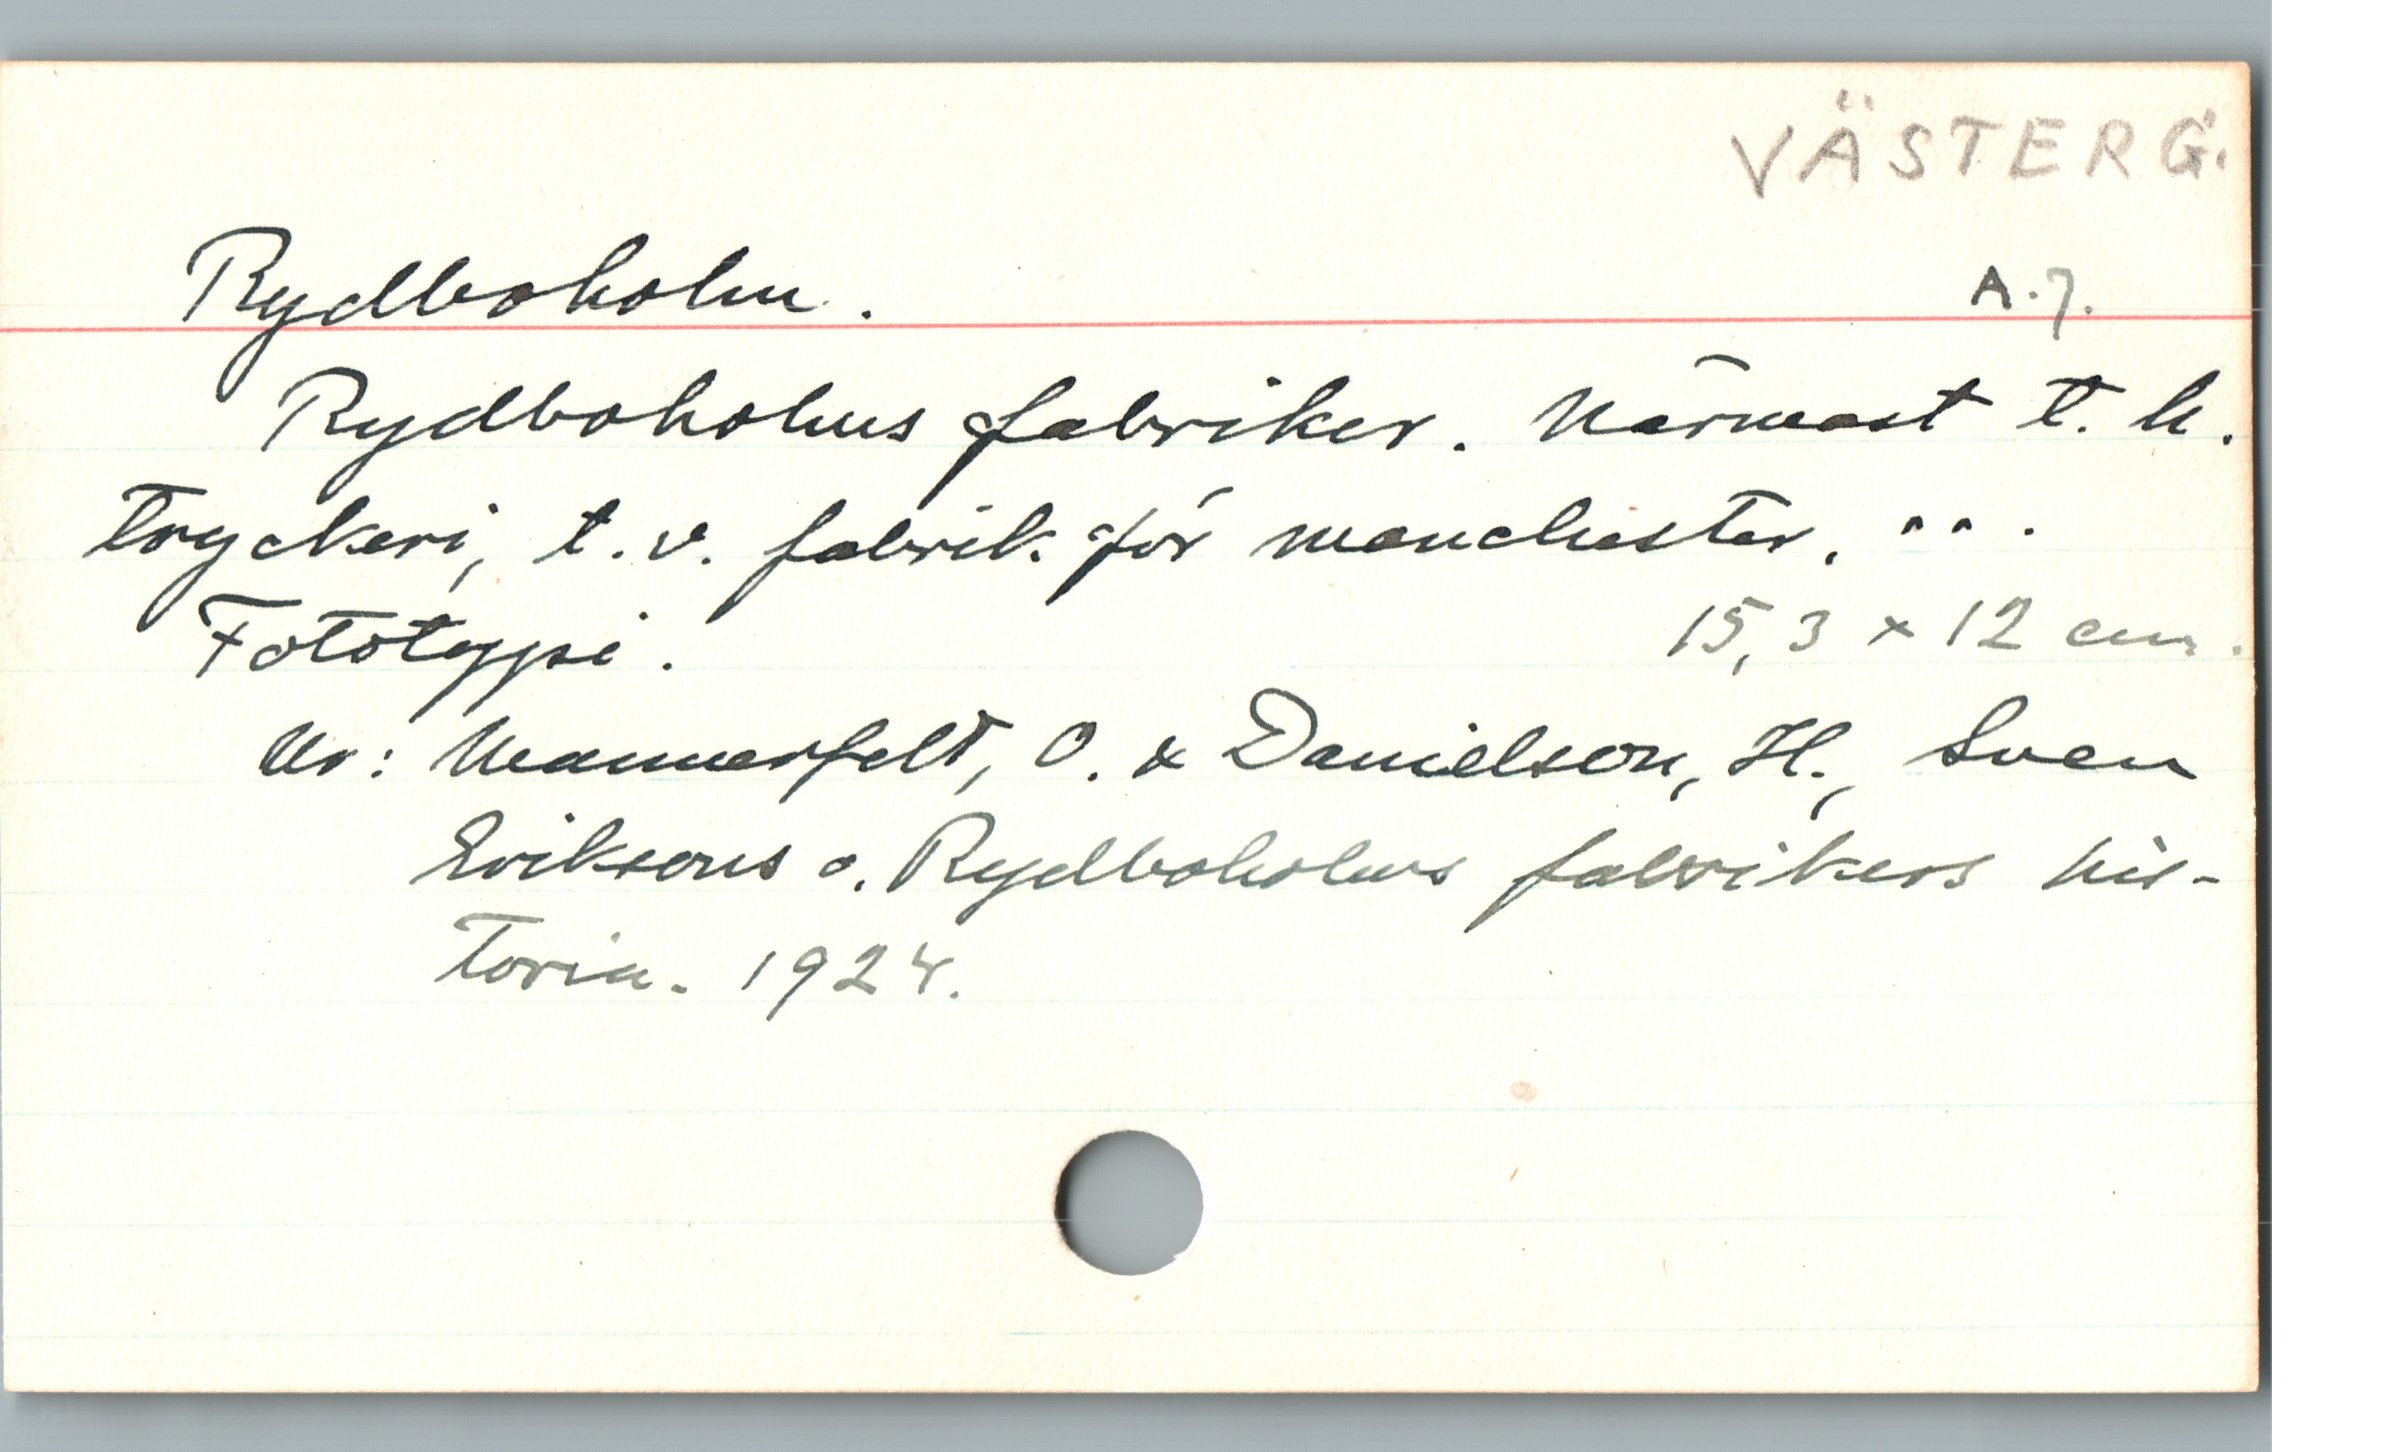 VÄSTERG.
Rydboholm. A.J.
Rydboholms fabriker. Närmast t. h.
tryckeri, t. v. fabrik för manchester. ...
Fototypi. 15,3 x 12 cm.
Ur: Mannerfelt, O. & Danielson, H., Sven
Eriksons o. Rydboholms fabrikers his-
toria. 1924.